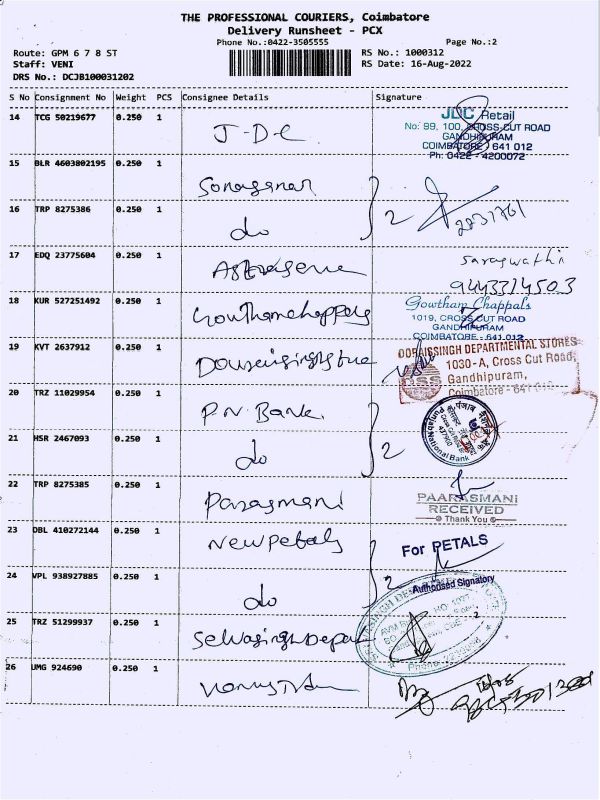 THE PROFESSIONAL COURIERS, Coimbatore
Delivery Runsheet - PCX
Phone No.:0422-3505555
Page No.:2
Route: GPM 6 7 8 ST
RS No.: 1000312
Staff: VENI
RS Date: 16-Aug-2022
DRS No.: DCJB100031202
S No Consignment No Weight PCS Consignee Details Signature
14 TCG 50219677 0.250 1 J-D-C
JDC Retail
No: 99, 100, CROSS-CUT ROAD
GANDHIPURAM
COIMBATORE - 641 012
Ph: 0422 - 4200072
15 BLR 4603802195 0.250 1
2
16 TRP 8275386 0.250 1 do
17 EDQ 23775604 0.250 1
Saraswathi
9443374503
18 KUR 527251492 0.250 1 Gowthamchappals
Gowtham Chappals
1019, CROSS CUT ROAD
GANDHIPURAM
COIMBATORE - 641 012
19 KVT 2637912 0.250 1
DORAISSINGH DEPARTMENTAL STORES
1030-A, Cross Cut Road,
Gandhipuram,
Coimbatore - 641 012
DSS
20 TRZ 11029954 0.250 1 P.N. Bank.
2
पंजाब नैशनल बैंक
Punjab National Bank
21 HSR 2467093 0.250 1 do
22 TRP 8275385 0.250 1 Parasmani
PAARASMANI
RECEIVED
Thank You
23 DBL 410272144 0.250 1 Newpetals
For PETALS
2
Authorised Signatory
24 VPL 938927885 0.250 1 do
25 TRZ 51299937 0.250 1 Selvasingh Depart
26 UMG 924690 0.250 1